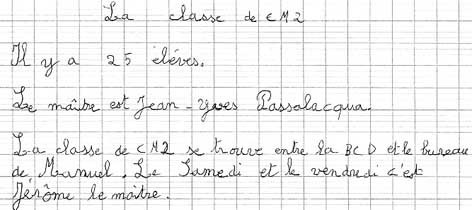 La classe de CM2
Il y a 25 élèves.
Le maître est Jean-Yves Passalacqua.
La classe de CM2 se trouve entre la BCD et le bureau
de Manuel. Le Samedi et le vendredi c'est
Jérôme le maître.